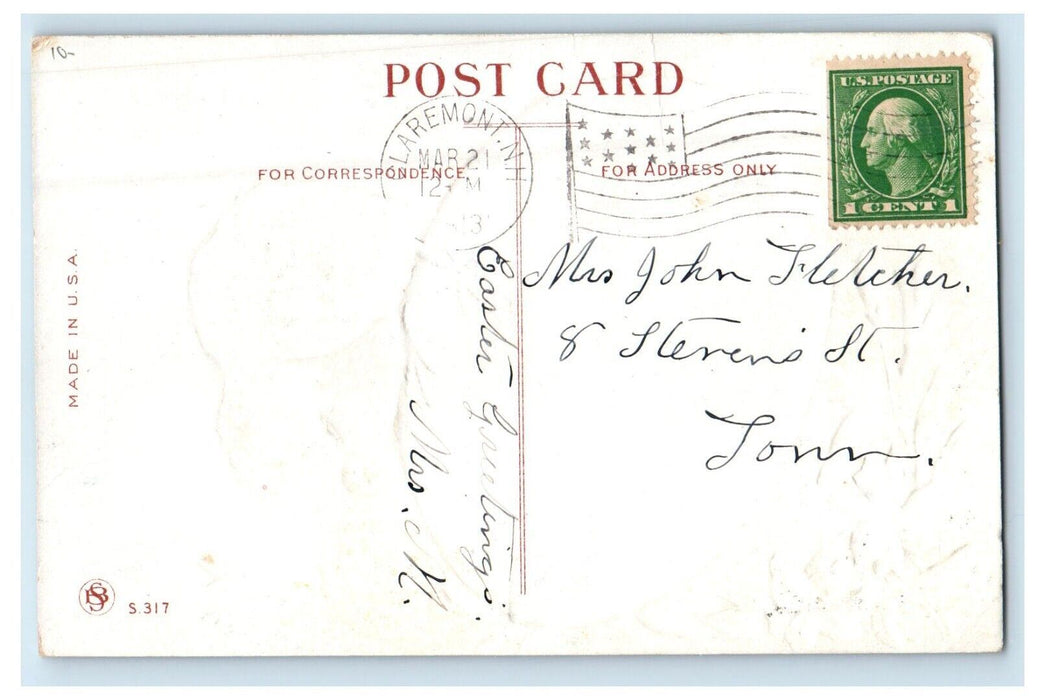 10-
POST CARD
U.S. POSTAGE
1 CENT 1
CLAREMONT, N.H.
MAR 21
12- M
13
FOR CORRESPONDENCE
FOR ADDRESS ONLY
MADE IN U.S.A.
Easter Greetings.
Mrs. M.
Mrs John Fletcher.
8 Stevens St.
Town.
S.317